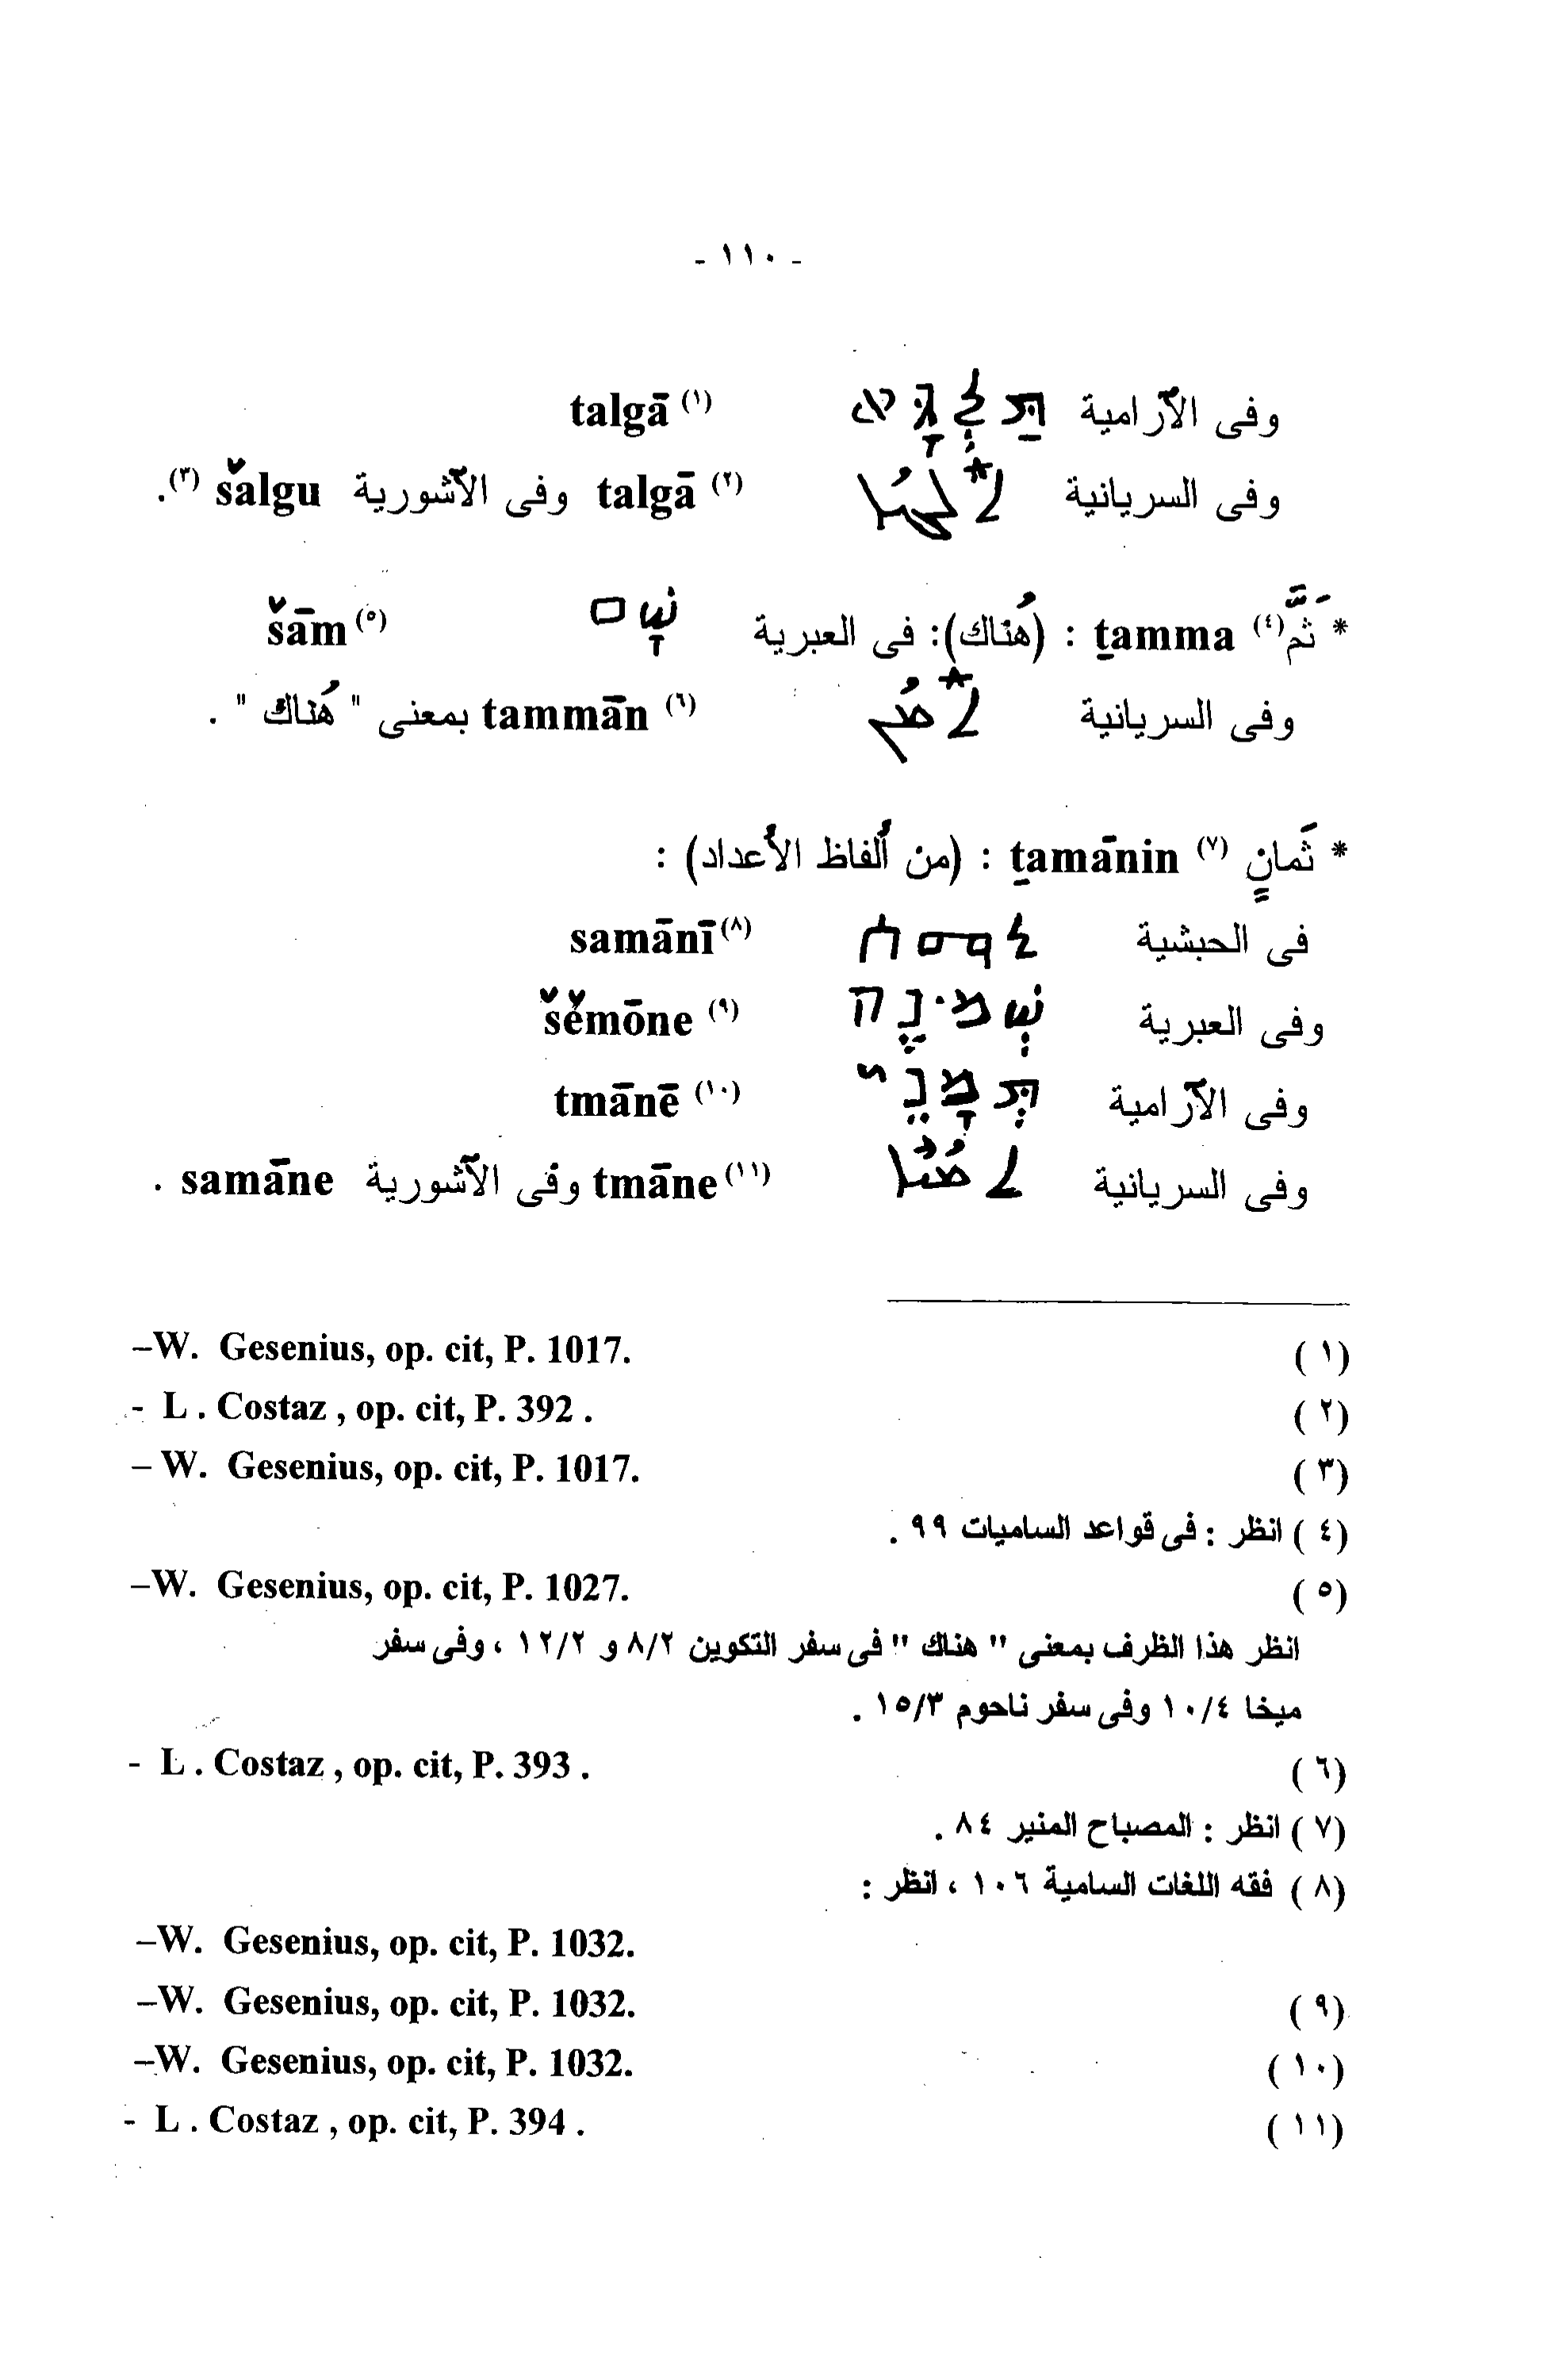 - ١١٠ -
وفى الآرامية תַּלְגָּא talgā (١)
وفى السريانية ܬܠܓܐ talgā (٢) وفى الآشورية šalgu (٣).
* ثَمَّ (٤) ṯamma : (هُناك): فى العبرية שָׁם šām (٥)
وفى السريانية ܬܡܢ tammān (٦) بمعنى " هُناك " .
* ثَمانٍ (٧) ṯamānin : (من ألفاظ الأعداد) :
فى الحبشية samānī (٨)
وفى العبرية שְׁמֹנֶה šěmōne (٩)
وفى الآرامية תְּמָנֵי tmānē (١٠)
وفى السريانية ܬܡܢܐ tmāne (١١) وفى الآشورية samāne .
(١) –W. Gesenius, op. cit, P. 1017.
(٢) - L . Costaz , op. cit, P. 392 .
(٣) – W. Gesenius, op. cit, P. 1017.
(٤) انظر : فى قواعد الساميات ٩٩ .
(٥) –W. Gesenius, op. cit, P. 1027.
انظر هذا الظرف بمعنى " هناك " فى سفر التكوين ٨/٢ و ١٢/٢ ، وفى سفر
ميخا ١٠/٤ وفى سفر ناحوم ١٥/٣ .
(٦) - L . Costaz , op. cit, P. 393 .
(٧) انظر : المصباح المنير ٨٤ .
(٨) فقه اللغات السامية ١٠٦ ، انظر :
–W. Gesenius, op. cit, P. 1032.
(٩) –W. Gesenius, op. cit, P. 1032.
(١٠) –W. Gesenius, op. cit, P. 1032.
(١١) - L . Costaz , op. cit, P. 394 .